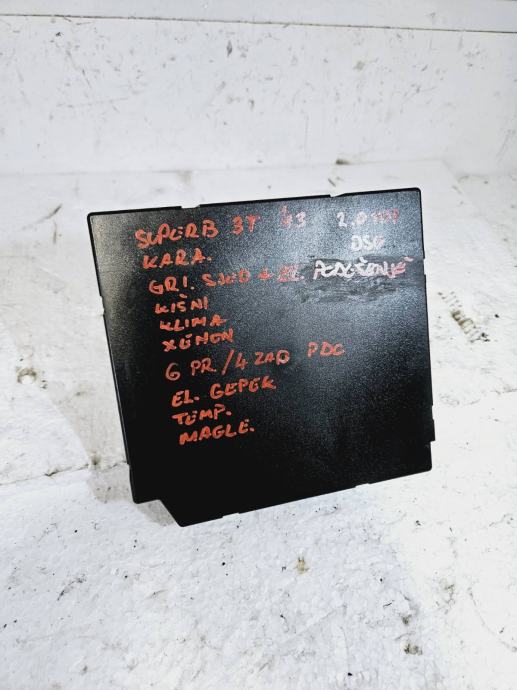 SUPERB 3T 13 2.0 TDI
DSG
KARA.
GRI. SJED + EL. PODEŠENJE
KIŠNI
KLIMA
XENON
6 PR / 4 ZAD PDC
EL. GEPEK
TEMP.
MAGLE.